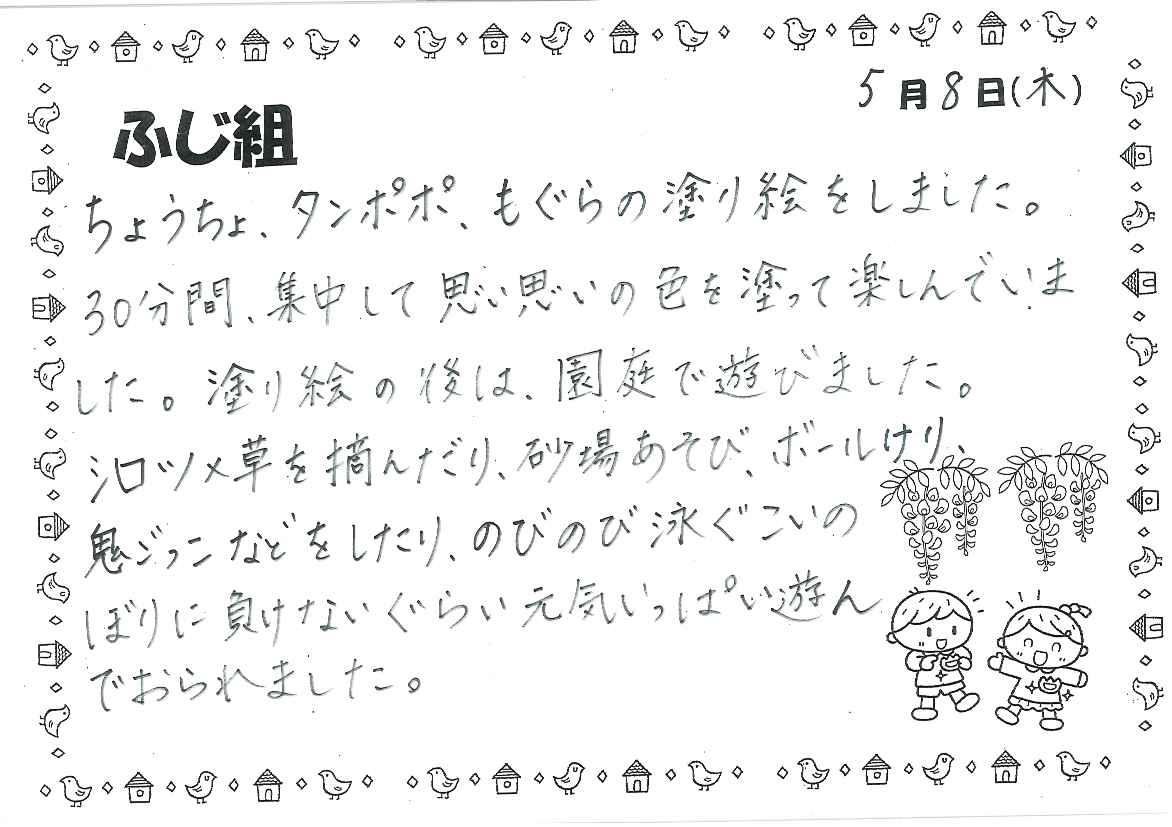 5月8日(木)
ふじ組
ちょうちょ、タンポポ、もぐらの塗り絵をしました。
30分間、集中して思い思いの色を塗って楽しんでいま
した。塗り絵の後は、園庭で遊びました。
シロツメ草を摘んだり、砂場あそび、ボールけり、
鬼ごっこなどをしたり、のびのび泳ぐこいの
ぼりに負けないぐらい元気いっぱい遊ん
でおられました。